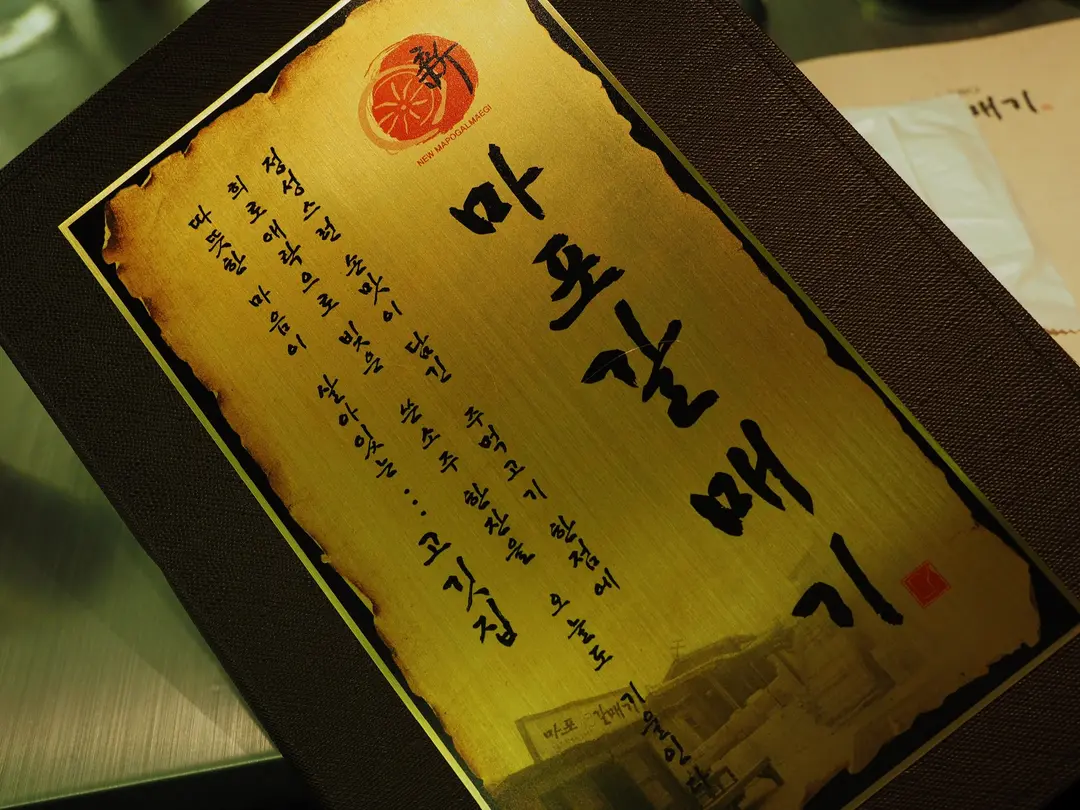 新
NEW MAPOGALMAEGI
마포갈매기
정성스런 손맛이 담긴 주먹고기 한점에
희로애락으로 빚은 쓴소주 한잔을 오늘도 기울인다
따뜻한 마음이 살아있는... 고깃집
마포 갈매기
매기